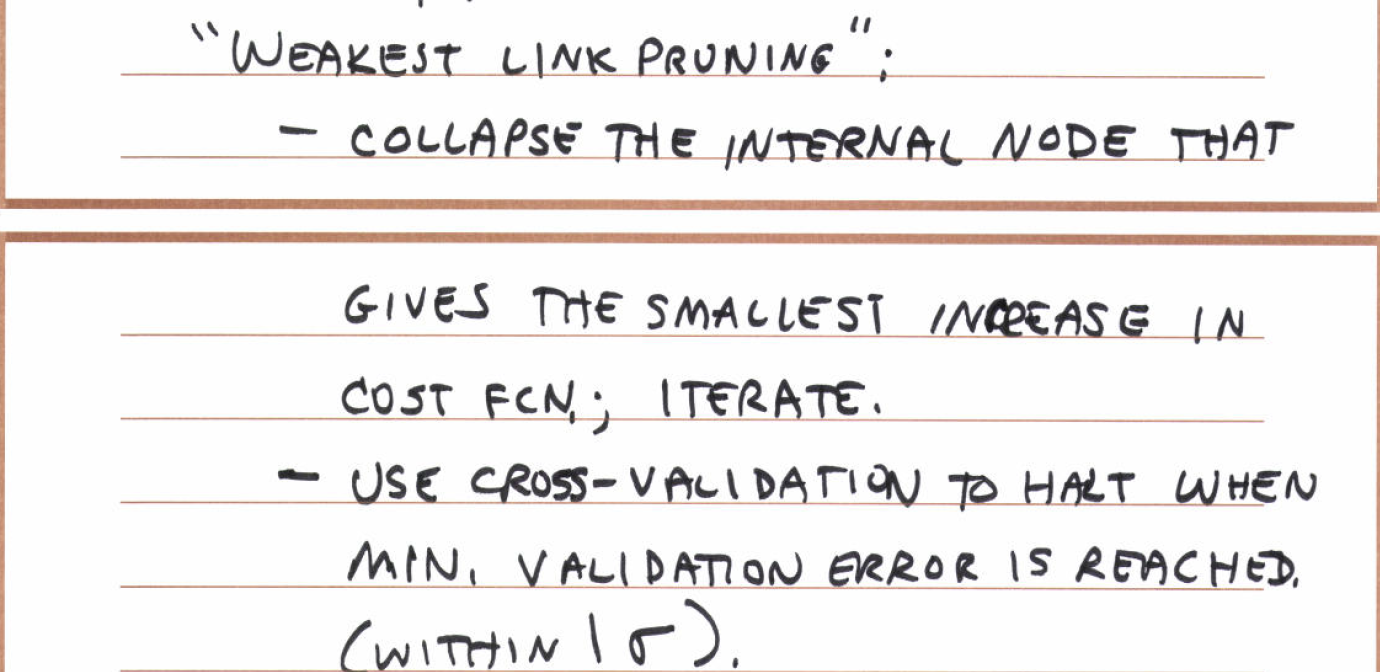 "WEAKEST LINK PRUNING":
- COLLAPSE THE INTERNAL NODE THAT
GIVES THE SMALLEST INCREASE IN
COST FCN.; ITERATE.
- USE CROSS-VALIDATION TO HALT WHEN
MIN. VALIDATION ERROR IS REACHED.
(WITHIN 1 σ).